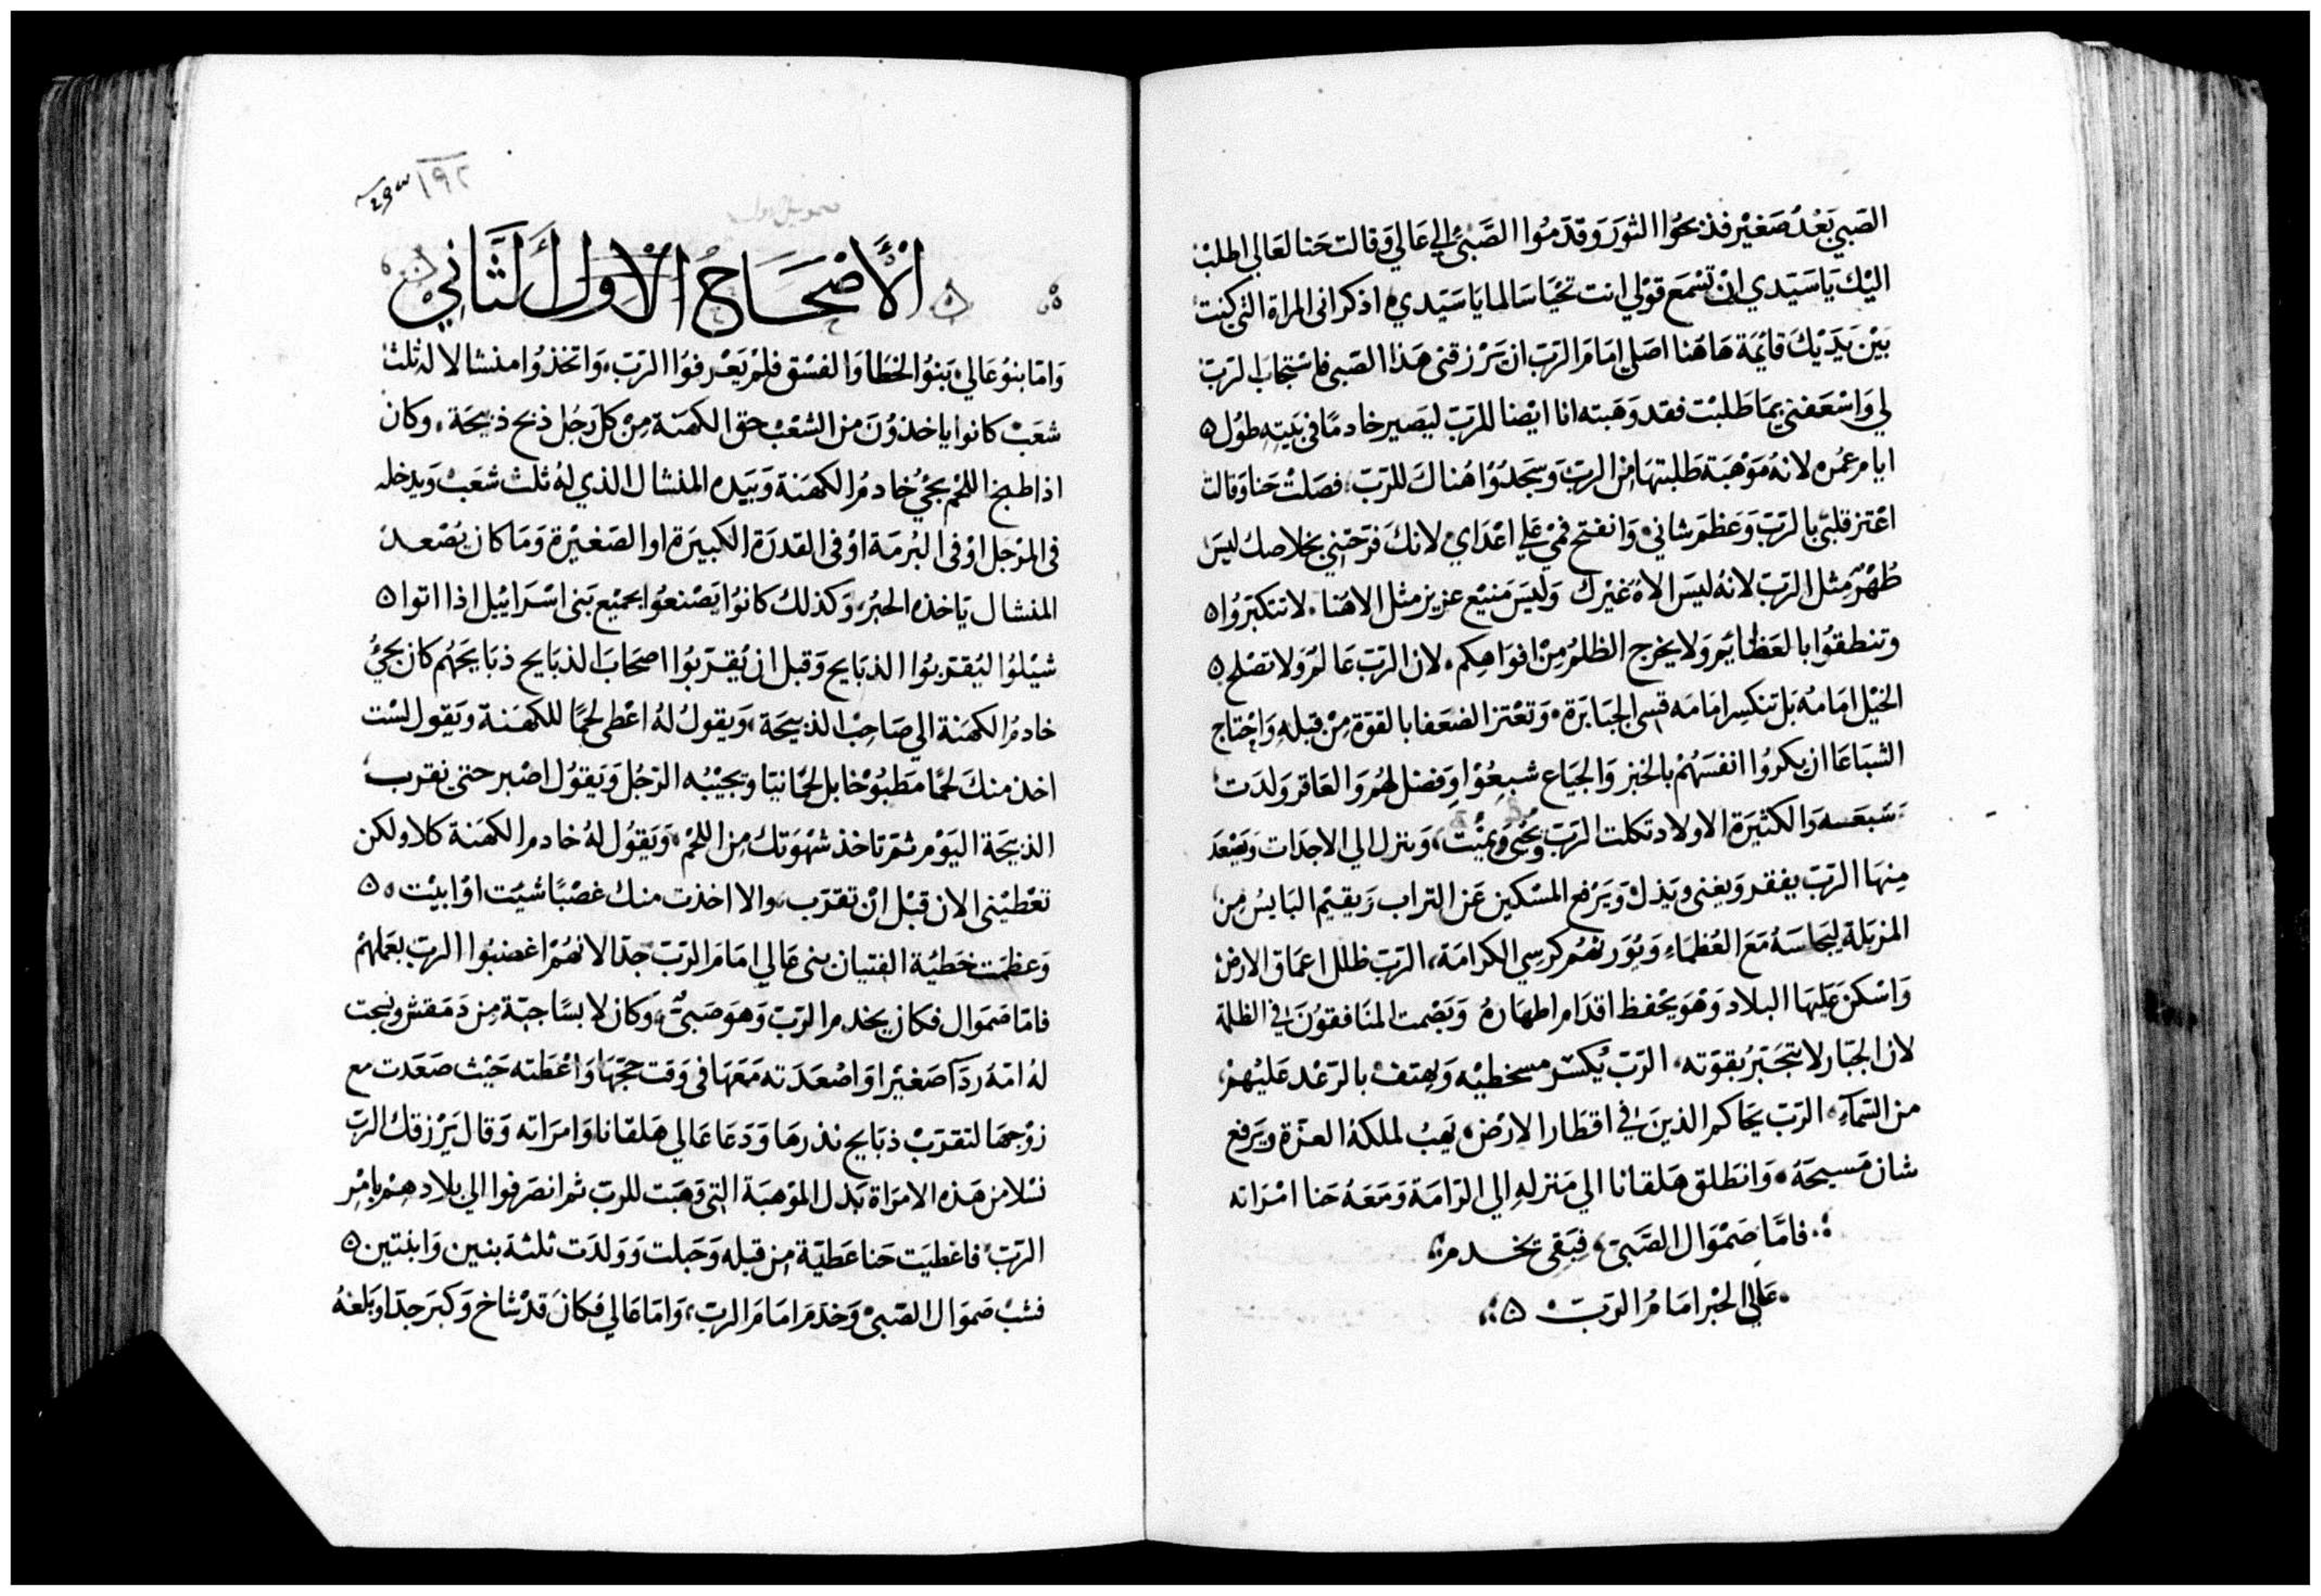 الصَبي بَعْدُ صَغيْر فذبحُوا الثوَرَ وَقدَمُوا الصَّبيُّ الي عَالي وَقالت حَنا لعَالى اطلبْ
اليْك يَاسَيَدي انْ تسْمَع قوْلي انت تحْيَا سَالما يَا سَيَدي اذكر انى المراة التي كنت
بَيْن يَدَيْك قايْمَة هَاهُنا اصَلي امَامَ الرَبّ ان يَرْزقنى هَذا الصَبى فاسْتجَابَ الرَبّ
لي وَاسْعَفنى بمَا طَلبْت فقد وَهَبته انا ايْضا للرَبّ ليَصير خادمًا فى بَيَتِهِ طوُل
ايام عمُره لانهُ مَوْهَبَة طَلبتهَا مِن الرَبّ وَسَجَدُوْا هُناكَ للرَبّ فصَلتْ حَنا وَقالت
اعْتز قلبَى بالرَبّ وَعَظمَ شانى وَانفتح فمْى عَلي اعْدَاي لانكَ فرَحَتنِي بخلاصكُ ليسَ
طُهْرٌ مِثل الرَبّ لانهُ ليسَ الاهُ غَيْركَ وَليسَ مَنيْع عزيز مثل الاهَنا لا تتكبَرُوا
وتنطقوُا بالعَظايَم وَلا يخرج الظلمُ مِنْ افوَاهِكم لان الرَبّ عَالمٌ وَلا تصْلح
الخيْل امَامهُ بَل تنكسِر امَامَه قسى الجبَابرَة وَتعْتز الضعَفا بالقوَة مِنْ قبلهِ وَاحْتاج
الشبَاعَا ان يكروُا انفسَهُمْ بالخبز وَالجيَاع شبعُوْا وفضل لهُم وَالعَاقر وَلدَت
سَبعَسه وَالكثيرَة الاولاد تكلت الرَبّ يحُى وَيميْت وَينزل الي الاجدَات وَيصْعَد
مِنهَا الرَبّ يفقر وَيغنى ويَذل وَيَرْفع المسْكين عَن التراب وَيقيْم البَايسُ مِن
المزبَلة ليَجاسَهُ مَعَ العُظمَاء وَيُوَرثهُم كرسِي الكرامَة الرَبّ ظلل اعمَاق الارض
وَاسْكن عَليَهَا البلاد وَهْوَ يحْفظ اقدَام اطهَارهُ وَيَصْمت المنَافقوُنَ في الظلمة
لان الجبَار لا يتجَبَرُ بقوَته الرَبّ يُكسَر مسخطيْه وَيهتف بالرَعْد عَليْهمْ
من السَمآءِ الرَبّ يحَاكم الذينَ في اقطَار الارْض يَهبُ لملكهُ العزّة ويَرفع
شان مَسيحَهُ وَانطَلق هَلقانا الي مَنزلهِ الي الرَامَة وَمَعَهُ حَنا امْرَاته
فامَّا صَمْوَال الصَّبيّ فبَقى يخدم
عَالي الحبْر امَامُ الرَبّ
١٩٢
الْأَصْحَاحُ الْاول الَثَّانِي
وَامّا بنوُ عَالي بَنوُ الخطَا وَالفسْق فلمْ يَعْرفوُا الرَبّ وَاتخذوُا منشالا له ثلث
شعَبْ كانوا ياخذوُنَ من الشعْب حق الكهنَة مِنْ كل رَجُل ذبح ذبيحَة وكان
اذا طبخ اللحْم يجيُ خادمُ الكهَنة وَبَيَده المنشال الذي لهُ ثلث شعَبْ وَيدخله
فى المرْجَل اوْ فى البُرمَة اوْ فى القدرَة الكبيرَة او الصَغيْرة وَمَا كان يُصْعدُ
المنشال يَاخذه الحبْر وَكذلكُ كانوُا يَصْنعوُا بجميْع بَنى اسْرَائيْل اذا اتوا
شيْلوُا ليُقرَبوُا الذبَايح وَقبل ان يُقرّبُوا اصحَابَ الذبَايح ذبَايحَهُم كان يجيُّ
خادمُ الكهَنة الي صَاحِبْ الذبيحَة وَيقولُ لهُ اعْطى لحمًا للكهَنة ويَقول لسْت
اخذ منكَ لحمًا مَطبُوْخا بل لحمًا نيَا وَيجيْبُه الرَجُل وَيَقوُل اصْبر حتى نقرب
الذبيحَة اليَوْم ثمَ تاخذ شهْوَتك مِن اللحْم وَيَقوُل لهُ خادم الكهَنة كلا ولكن
تعْطيْنى الان قبْل انْ تقرَب والا اخذت منك غصْبًا شيْت اوْ ابيْت
وَعظمَت خطيْة الفتيان بنى عَالي امَامَ الرَبّ جدًا لانهُمْ اغضبُوا الرَبّ بعَملهمْ
فامّا صَموَال فكان يخدم الرَبّ وَهوَ صَبىٌ وَكان لابسًا جبّة مِن دَمَقش ونِسجت
لهُ امّهُ ردَآ صَغيْرا وَاصْعَدَته مَعَهَا فى وَقت حجّهَا وَاعْطته حَيْث صَعَدت مع
زوْجهَا لتقرَبْ ذبَايح نذرهَا وَدَعَا عَالي هَلقانا وَامرَاته وَقال يَرْزقك الرَبّ
نسْلا من هَذه الامرَاة بَدل الموْهبَة التى وَهَبَت للربّ ثم انصَرفوا الي بلادهِمْ بامْر
الرَبّ فاعْطيَت حَنا عَطيّة مِن قبله وَحَبلت وَوَلدَت ثلثة بنين وَابنتين
فشبْ صَموَال الصَبىْ وَخدَمَ امَامَ الربّ وَامّا عَالي فكانَ قدْ شاخ وَكبرَ جدَا وَبَلغهُ